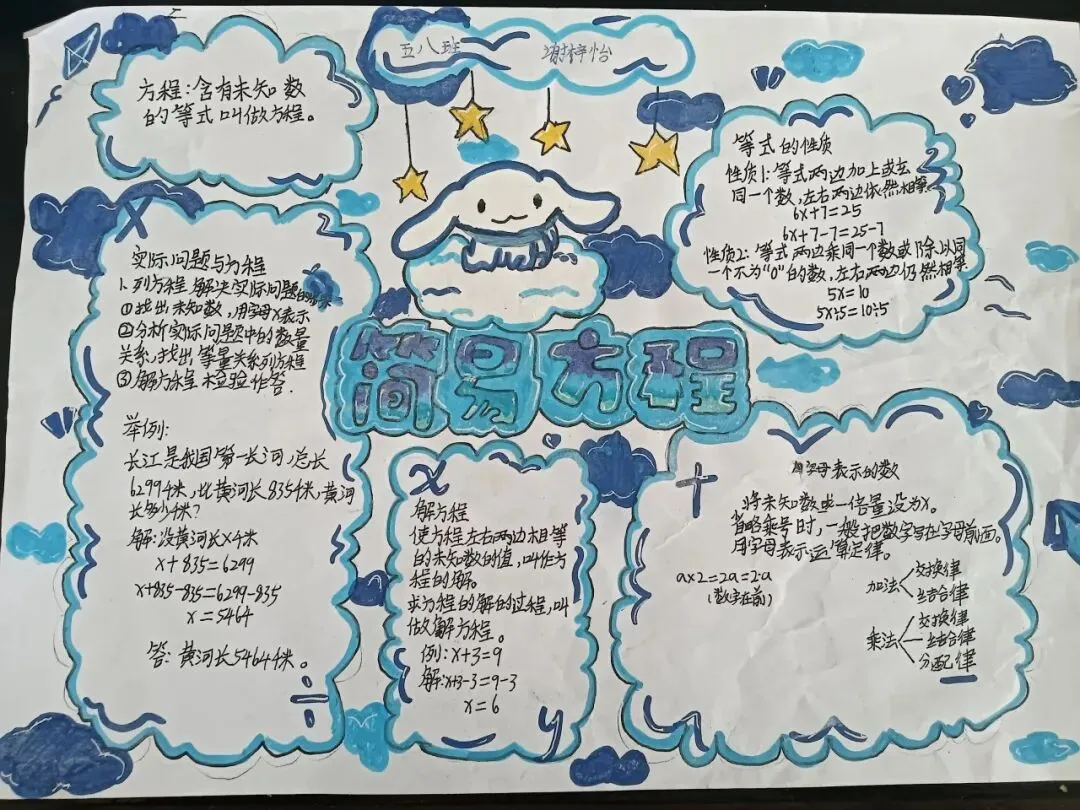 五八班 谢梓怡
方程:含有未知数
的等式叫做方程。
等式的性质
性质1:等式两边加上或玄
同一个数,左右两边依然相等。
6x+7=25
6x+7-7=25-7
性质2:等式两边乘同一个数或除以同
一个不为“0”的数,左右两边仍然相等
5x=10
5x÷5=10÷5
简易方程
x
实际问题与方程
1、列方程解决实际问题的
①找出未知数,用字母x表示
②分析实际问题中的数量
关系,找出等量关系列方程
③解方程检验作答.
举例:
长江是我国第一长河,总长
6299千米,比黄河长835千米,黄河
长多少千米?
解:设黄河长x千米
x+835=6299
x+835-835=6299-835
x=5464
答:黄河长5464千米。
÷
x
解方程
使方程左右两边相等
的未知数的值,叫作方
程的解。
求方程的解的过程,叫
做解方程。
例:x+3=9
解:x+3-3=9-3
x=6
y
+
用字母表示的数
将未知数或一倍量设为x。
省略乘号时,一般把数字写在字母前面。
用字母表示运算定律。
a×2=2a=2·a
(数字在前)
加法
交换律
结合律
乘法
交换律
结合律
分配律